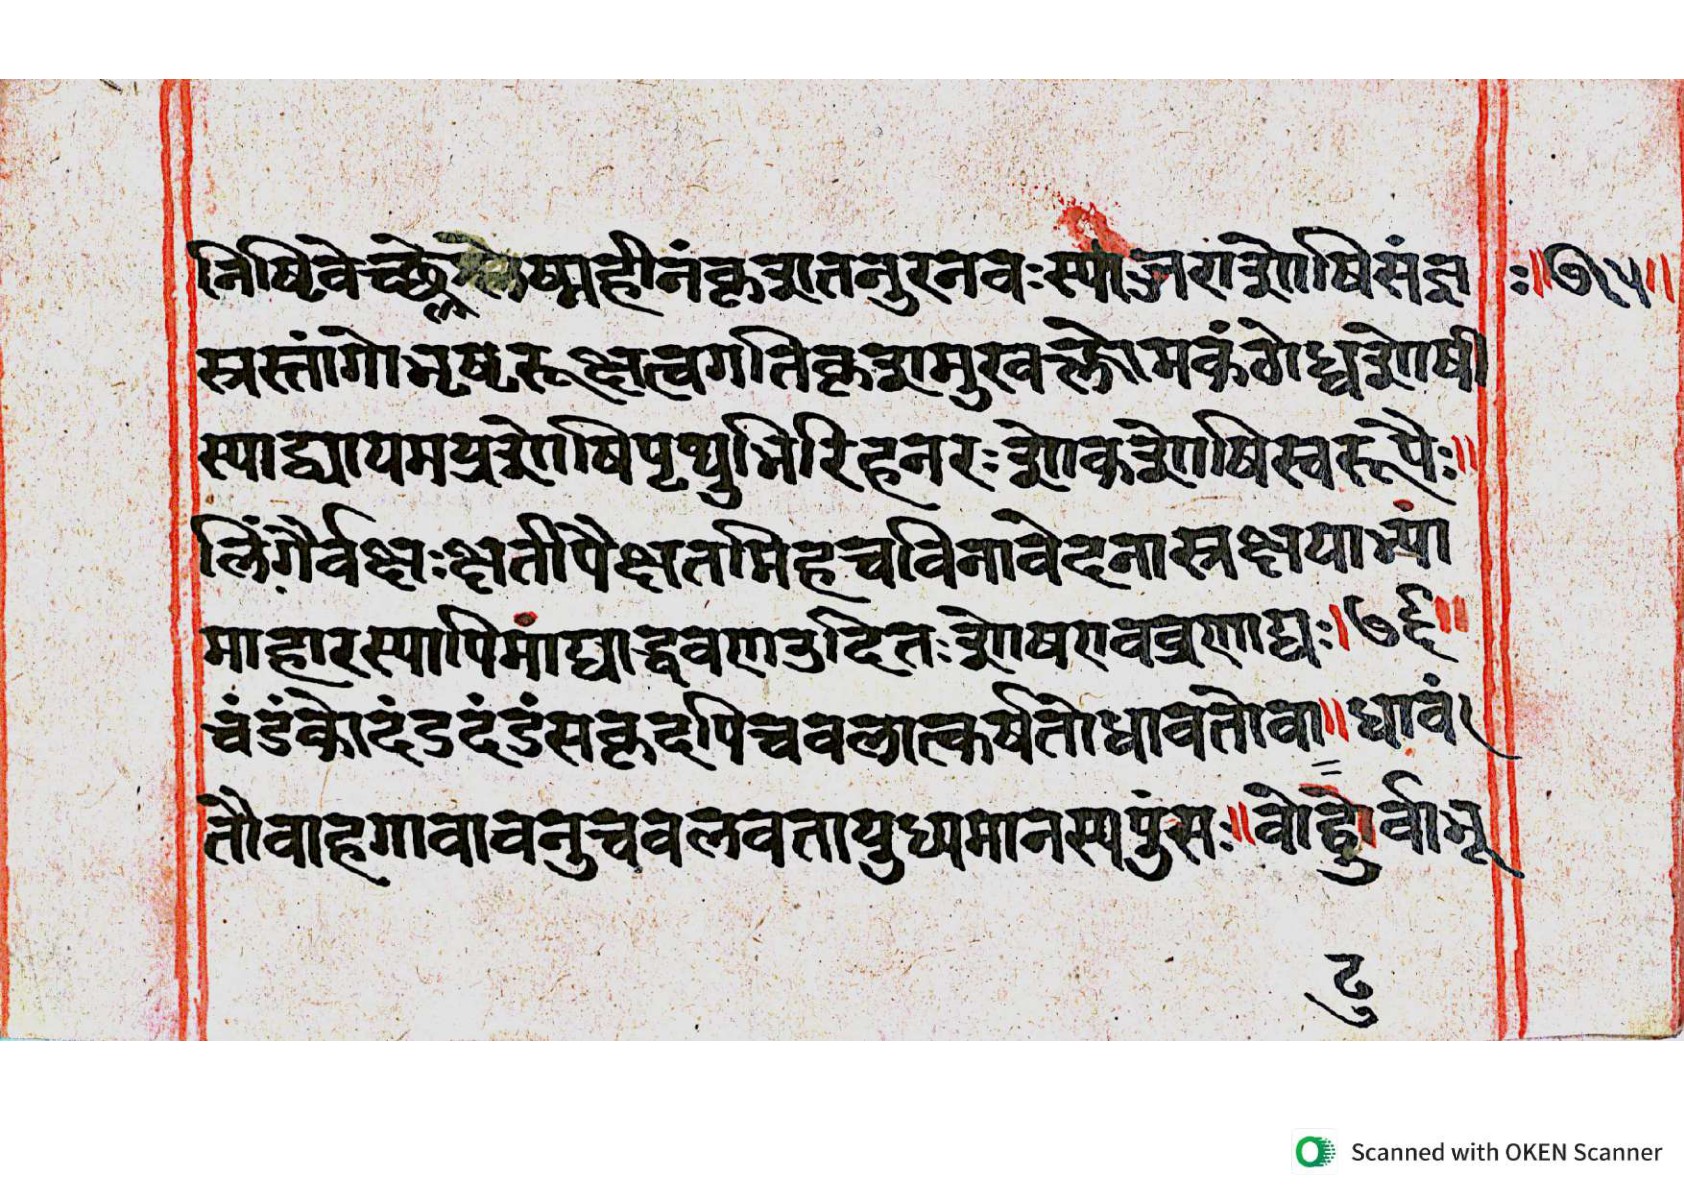 निषिवेच्छ्ले ष्महीनंकृशतनुरनवःस्या ज्जराशोषिसंज्ञः॥७५॥
स्त्रस्तांगोभृष्टरूक्षत्वगतिकृशमुखक्लोमकंठोध्वशोषी
स्याद्व्यायमप्रशोषिपृथुभिरिहनरःशोकशोषिस्वरूपैः॥
लिंगैर्वक्षःक्षतीपैक्षतमिहचविनावेदनास्त्रक्षयाभ्यां
माहारस्यापिमांद्याद्ववणउदितःशोषणवव्रणाद्यः।७६॥
चंडंकोदंडदंडंसकृदपिचवलात्कर्षतोधावतोवा॥धावं
तौवाहगावावनुचवलवतायुध्यमानस्यपुंसः॥वोढुोर्वाभू
ढु
Scanned with OKEN Scanner